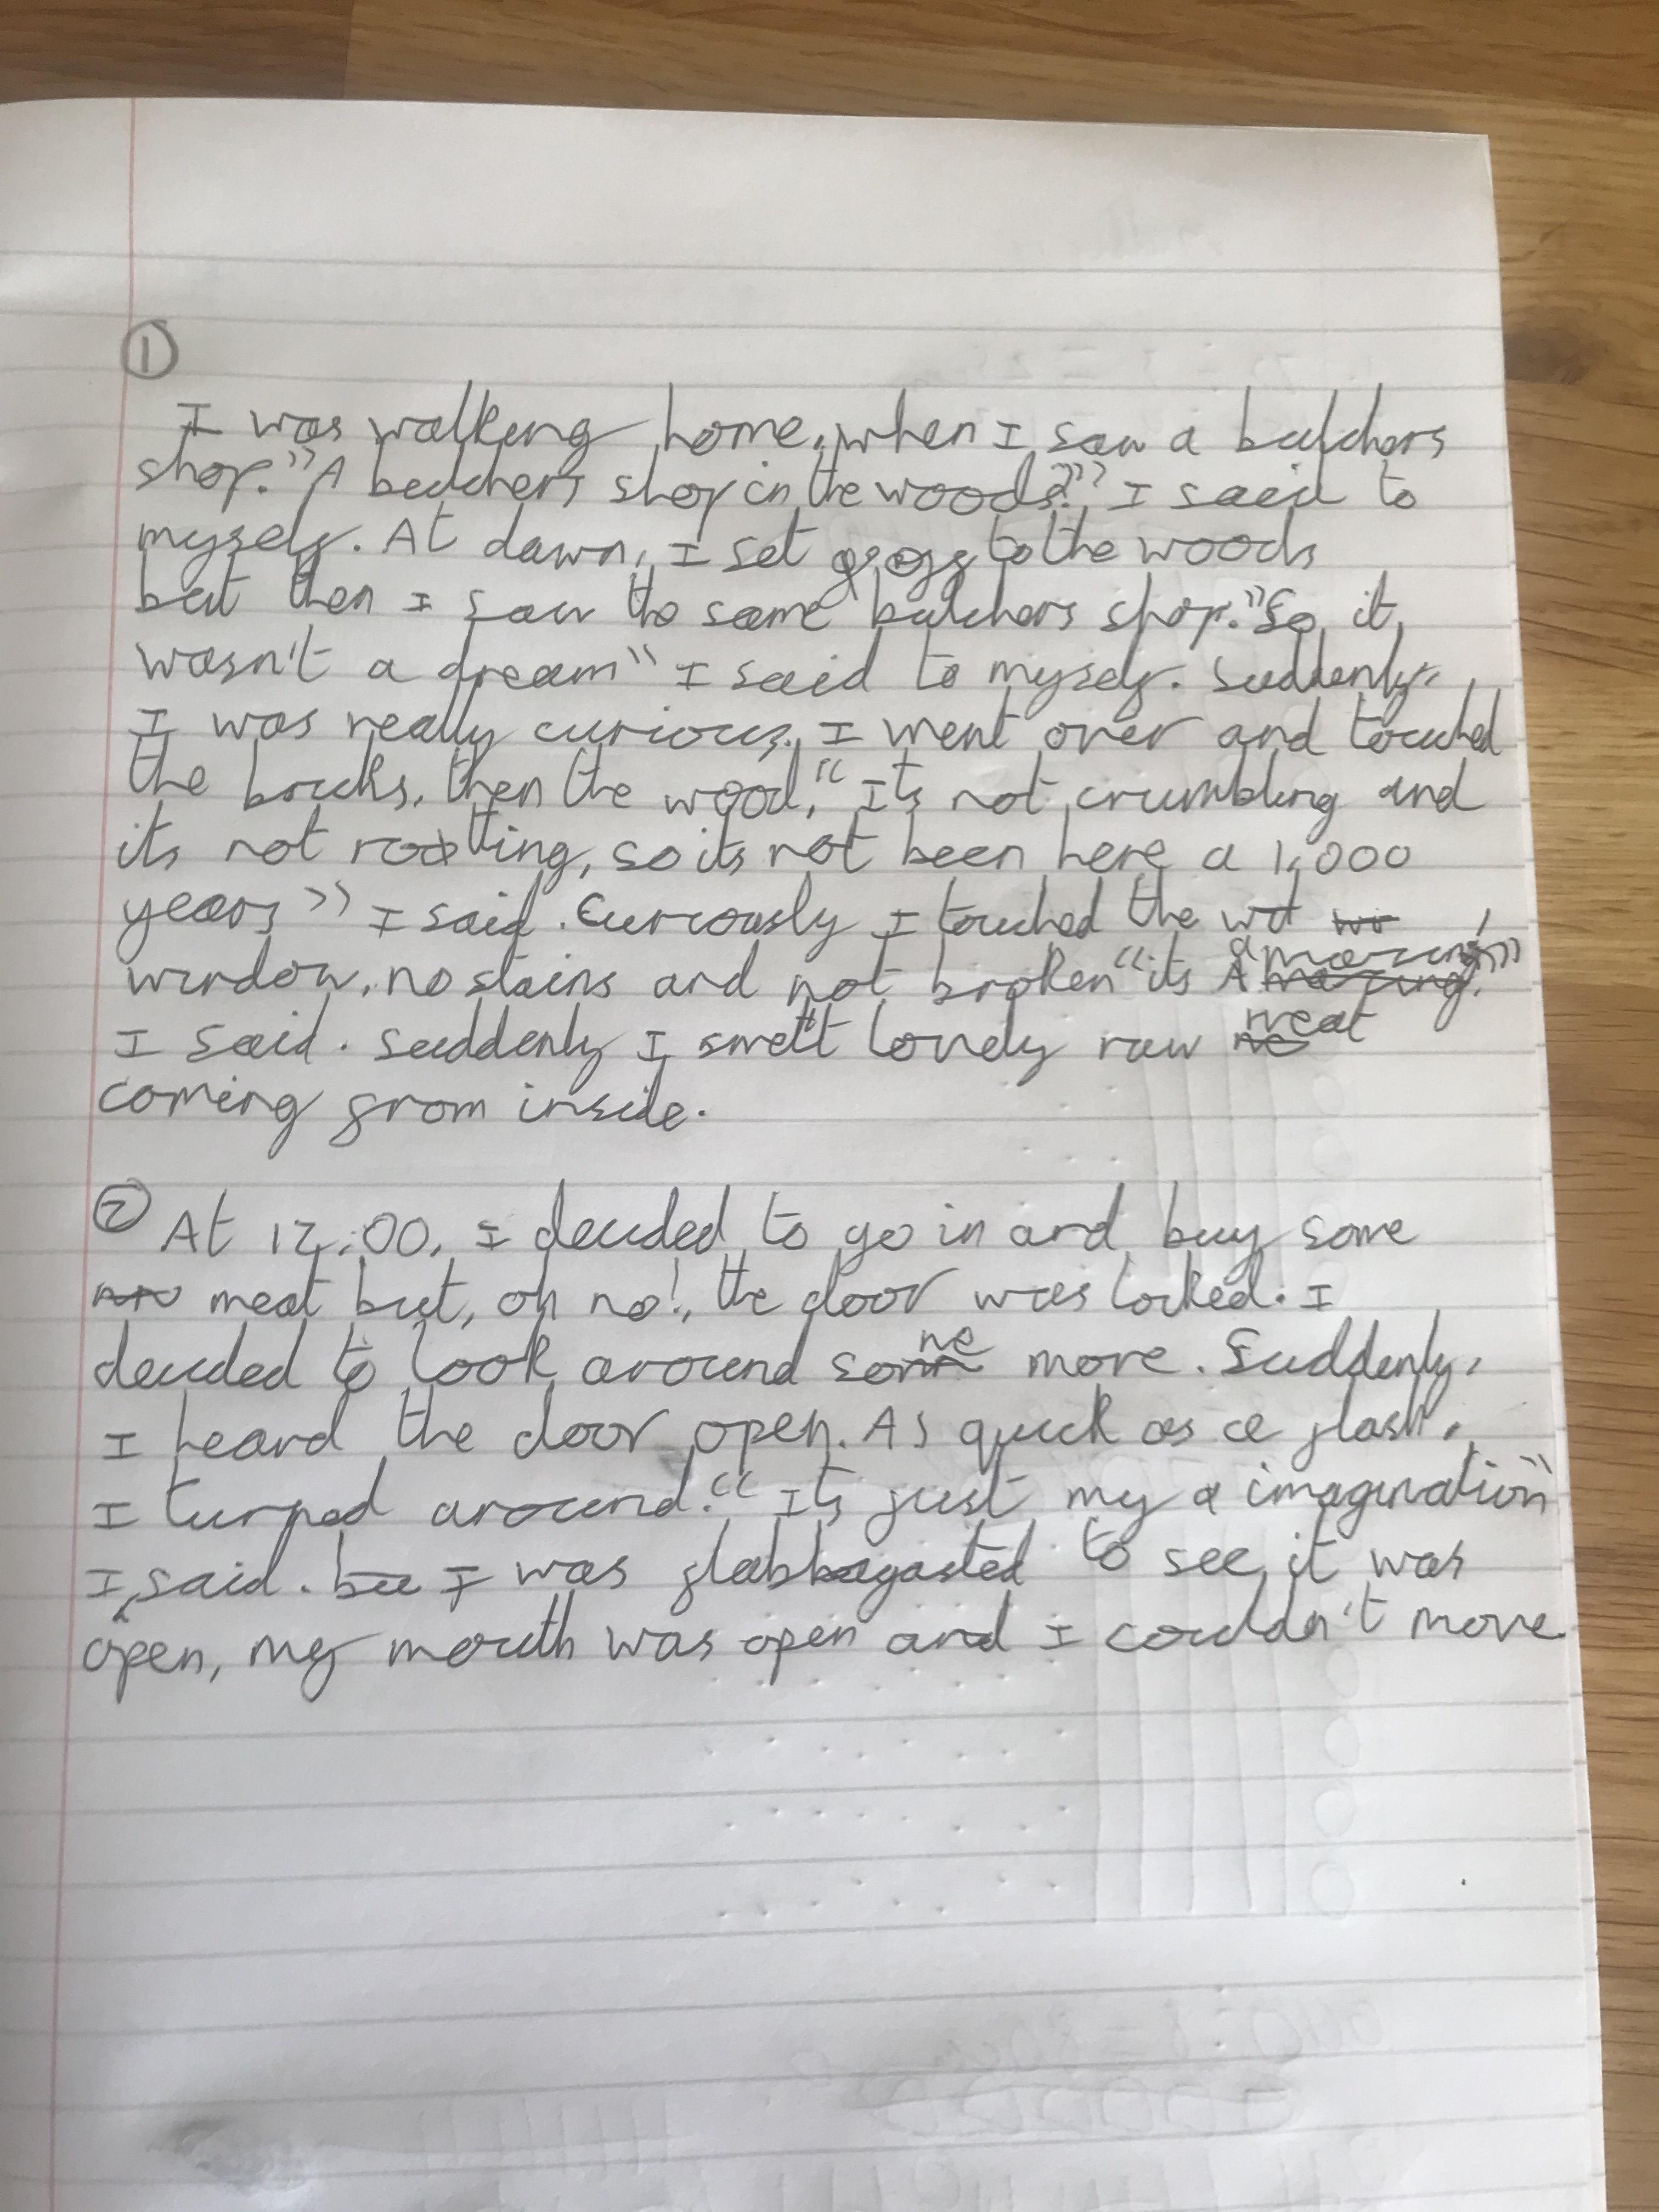 ①
I was walking home, when I saw a butchers
shop. "A butchers shop in the woods?" I said to
myself. At dawn, I set off to the woods
but then I saw the same butchers shop. "So it
wasn't a dream" I said to myself. Suddenly,
I was really curious, I went over and touched
the bricks, then the wood, "Its not crumbling and
its not rotting, so its not been here a 1,000
years" I said. Curiously I touched the
window, no stains and not broken "its amazing!"
I said. Suddenly I smelt lovely raw meat
coming from inside.
② At 12:00, I decided to go in and buy some
meat but, oh no!, the door was locked. I
decided to look around some more. Suddenly,
I heard the door open. As quick as a flash,
I turned around. "Its just my imagination"
I said. I was flabbagasted to see it was
open, my mouth was open and I couldn't move